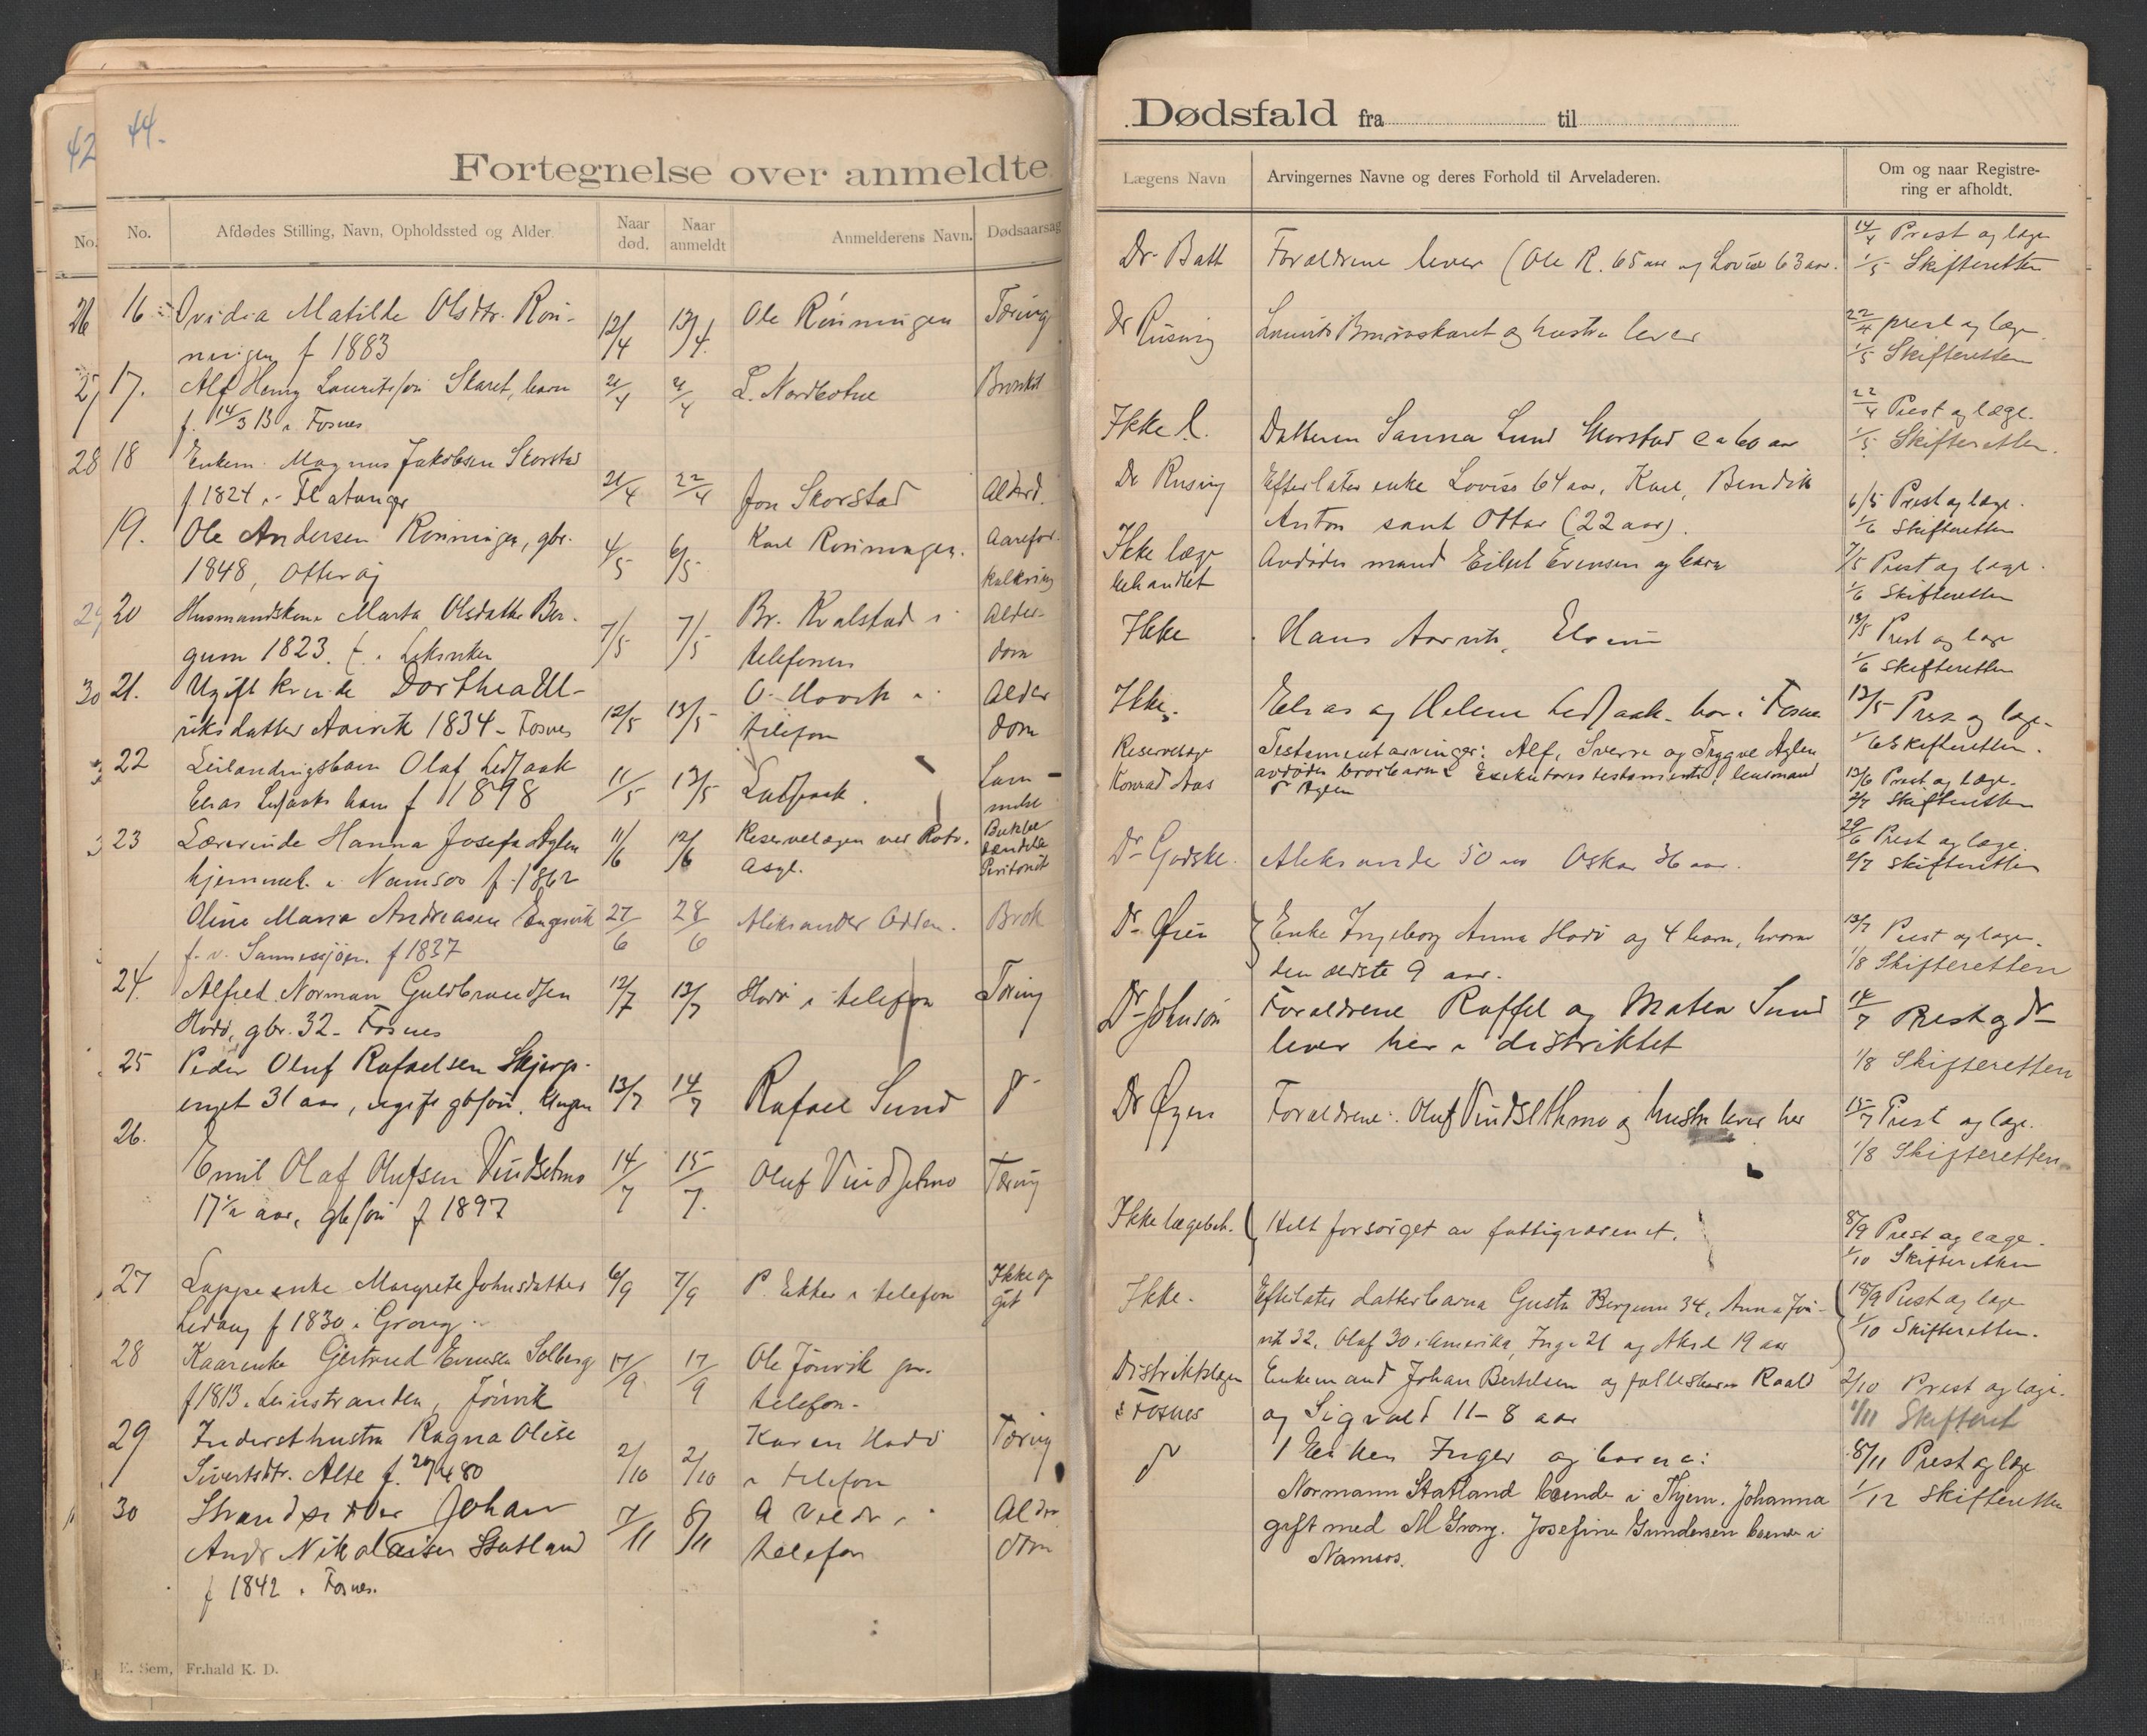 42
44.
Fortegnelse over anmeldte
No.
No.
Afdødes Stilling, Navn, Opholdssted og Alder.
Naar død.
Naar anmeldt
Anmelderens Navn.
Dødsaarsag
26 16 Ovidia Matilde Olsdtr. Rön- 12/4 13/4 Ole Rönningen Tæring
ningen f 1883
27 17. Alf Henry Lauritssön Skaret, barn 21/4 21/4 L. Nordbotne
f. 14/3 13 i Fosnes
28 18 Enkem. Magnus Jakobsen Skorstad
f 1824 i Flatanger 21/4 22/4 Jon Skorstad Alderd.
19. Ole Andersen Rönningen, gbr. 4/5 6/5 Karl Rönningen. Aarefor-
1848, Otterøy kalkning
29 20 Husmandskone Marta Olsdatter Ber- 7/5 7/5 Br. Kvalstad i Alder-
gum 1823. f. i Leksviken telefonen dom
30 21. Ugift kvinde Dorthea Ul- 12/5 13/5 O. Hovik i Alder
riksdatter Aarvik 1834 - Fosnes telefon dom
22 Leilændingsbarn Olaf Ledsaak 11/5 13/5 Ledsaak. Lam-
Elias Ledsaaks barn f 1898 melse
23 Lærerinde Hanna Josefa Aglen 11/6 12/6 Reservelægen ved Rotv.
hjemmeh. i Namsos f. 1862 Asyl. Peritonit
Oline Maria Andreasen Engsvik 27/6 28/6 Aleksander Odden. Brok
f. v. Sannessjöen. f 1837
24. Alfred Norman Guldbrandsen 12/7 13/7 Hodö i telefon Tæring
Hodö, gbr. 32 - Fosnes
25 Peder Oluf Rafaelsen Skjærp-
enget 31 aar, ugift gbsön. 13/7 14/7 Rafael Sund
26.
Emil Olaf Olufsen Vindsetmo 14/7 15/7. Oluf Vindsetmo Tæring
17½ aar, gbsön f 1897
27 Lappeenke Margrete Johnsdatter 6/9 7/9 P. Ekker i telefon Ikke op
f 1830 i Grong. git
28 Kaarenke Gjertrud Evensen Solberg 17/9 17/9 Ole Jönvik
f 1813. Leinstranden, Jönvik telefon.
29 Inderst hustru Ragna Olise 2/10 2/10 Karen Hodö Tæring
Sivertsdtr. Alte f. 80 i telefon
30 Strandsidder Johan 7/11 8/11 A i Alder
Andr Nikolaisen Statland telefon dom
f 1842 i Fosnes.
E. Sem, Fr.hald K. D.
Dødsfald fra til
Lægens Navn
Arvingernes Navne og deres Forhold til Arveladeren.
Om og naar Registre-
ring er afholdt.
Dr. Batt Forældrene lever (Ole R. 65 aar og Lovise 63 aar. 14/4 Prest og læge
1/5 Skifteretten
Dr Rusing Laurits Brunskaret og hustru lever 22/4 prest og læge
1/5 Skifteretten
Ikke l. Datteren Sanna Lund Skorstad ca 60 aar 22/4 Prest og læge.
1/5 Skifteretten.
Dr Rusing Efterlater enke Lovise 64 aar, Karl, Bendik
Anton samt Ottar (22 aar). 6/5 Prest og læge.
1/6 Skifteretten
Ikke læge Avdödes mand Eilert Evensen og barn 7/5 Prest og læge.
behandlet 1/6 Skifteretten
Ikke Hans Aarvik, 13/5 Prest og læge
1/6 Skifteretten
Ikke. Elias og Helene Ledsaak bor i Fosnes 13/5 Prest og læge.
1/6 Skifteretten.
Reservelæge Testamentarvinger: Alf, Sverre og Trygve Aglen
Konrad Aas avdödes brorbarn. Executores testamenti: lensmand 13/6 Prest og læge.
Aglen 2/7 Skifteretten
Dr Godske. Aleksander 50 aar Oskar 36 aar. 29/6 Prest og læge.
2/7 Skifteretten
Dr Øien Enke Ingeborg Anna Hodö og 4 barn, hvorav 13/7 Prest og lægen.
den ældste 9 aar. 1/8 Skifteretten
Dr Johnson Forældrene Raffel og Matea Sund 14/7 Prest og dr
lever her i distriktet 1/8 Skifteretten
Dr Øyen Forældrene: Oluf Vindsethmo og hustru lever her 15/7 Prest og læge.
1/8 Skifteretten
Ikke lægebeh. Helt forsörget av fattigvæsenet. 8/9 Prest og læge.
1/10 Skifteretten
Ikke. Efterlater datterbarna Gusta Bergum 34, Anna Jön- 18/9 Prest og læge
vik 32, Olaf 30 i Amerika, Inga 21 og Aksel 19 aar 1/10 Skifteretten.
Distriktslægen Enkemand Johan Bertelsen og fællesbarn Roald 2/10 Prest og læge.
i Fosnes og Sigvald 11 - 8 aar 1/11 Skifteret
Enken Inger og barna: 8/11 Prest og læge
Normann Statland boende i Thjem. Johanna 1/12 Skifteretten
gift med M Grong. Josefine Gundersen boende i
Namsos.